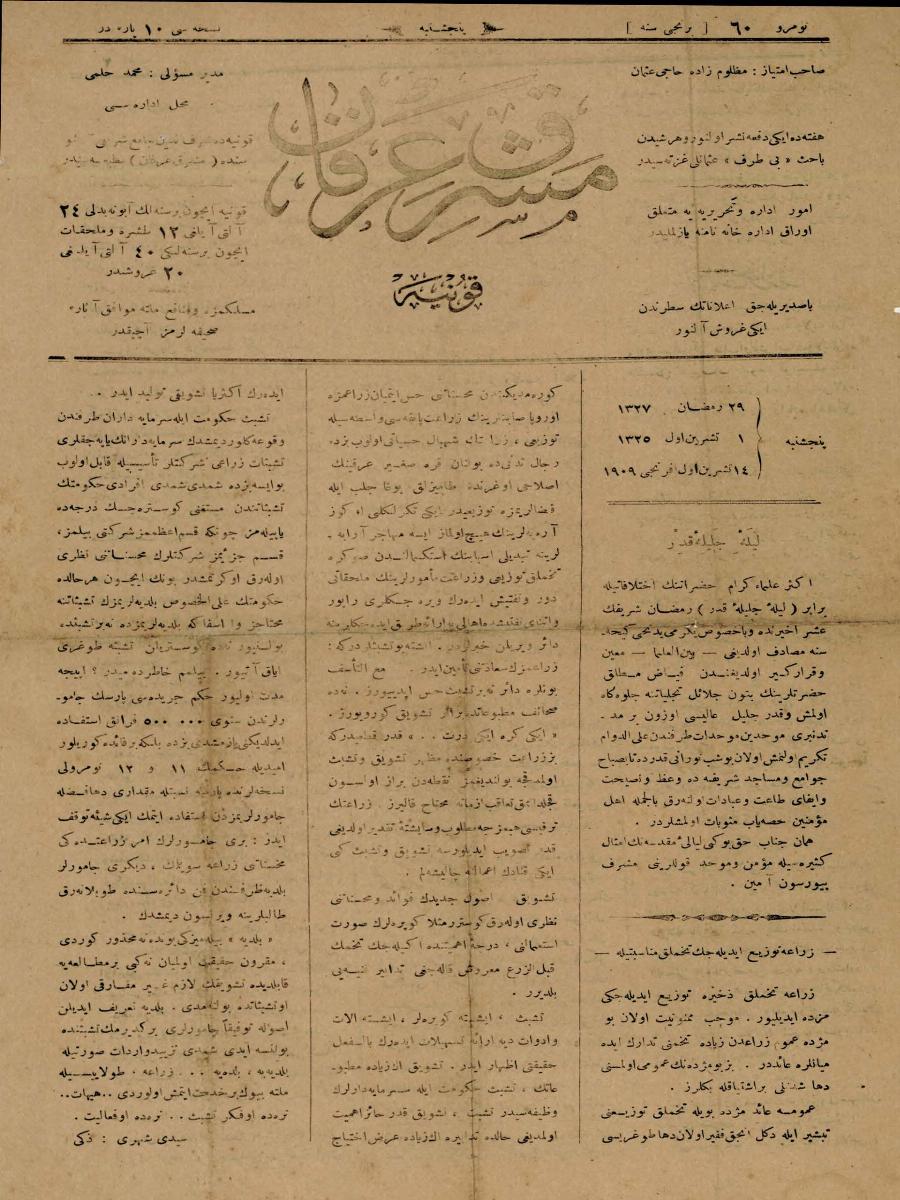 نومرو ٦٠ [ برنجی سنه ]
پنجشنبه
نسخه سی ١٠ پاره در
صاحب امتیاز : مظلوم زاده حاجی عثمان
هفته ده ایکی دفعه نشر اولنور و هر شیدن
باحث « بی طرف » عثمانلی غزته سیدر
امور اداره و تحریریه یه متعلق
اوراق اداره خانه نامنه یازلملیدر
باصدیریله جق اعلاناتك سطرندن
ایکی غروش آلنور
مشرق عرفان
قونیه
مدیر مسؤلی : محمد حلمی
محل اداره سی
قونیه ده شرف الدین جامع شریفی
سنده ( مشرق عرفان ) مطبعه سیدر
قونیه ایچون بر سنه لك آبونه بدلی ٢٤
آلتی آیلغی ١٢ طشره و ملحقات
ایچون بر سنه لکی ٤٠ آلتی آیلغی
٢٠ غروشدر
مسلکمزه و منافع ملته موافق آثاره
صحیفه لرمز آچیقدر
پنجشنبه
٢٩ رمضان ١٣٢٧
١ تشرین اول ١٣٢٥
١٤ تشرین اول افرنجی ١٩٠٩
لیلهٔ جلیلهٔ قدر
اکثر علماء کرام حضراتنك اختلافاتیله
برابر ( لیلهٔ جلیلهٔ قدر ) رمضان شریفك
عشر اخیرنده و باخصوص یکرمی یدنجی کیجه
سنه مصادف اولدیغی — بین العلما — معین
و قرارکیر اولدیغندن فیاض مطلق
حضرتلرینك بتون جلائل تجلیاتنه جلوه کاه
اولمش وقدر جلیل عالیسی اوزون بر مد
تدنبری موحدین موحدات طرفندن علی الدوام
تکریم اولنمش اولان بو شب نورانی قدرده تا بصباح
جوامع و مساجد شریفه ده وعظ و نصیحت
و ایفای طاعت و عبادات اولنه رق بالجمله اهل
مؤمنین حصه یاب مثوبات اولمشلردر .
همان جناب حق بو کی لیالئ مقدسه نك امثال
کثیره سیله مؤمن و موحد قوللرینی مشرف
بیورسون آمین .
— زراعه توزیع ایدیله جك تخملق مناسبتیله —
زراعه تخملق ذخیره توزیع ایدیله جکی
مژده ایدیلیور . موجب ممنونیت اولان بو
مژده عموم زراعدن زیاده تخمنی تدارك ایده
میانلره عائددر . بز بو مژده نك عمومی اولمسنی
دها شدتلی بر اشتیاقله بکلرز .
عمومه عائد مژده بویله تخملق توزیعنی
تبشیر ایله دکل آنجق فقیر اولان دها طوغریسی
کوره مدیکندن محسناتنی حس ایتمیان زراعمزه
اوروپا صابانلرینك زراعت بانقه سی واسطه سیله
توزیعی ، زراعتك شهبال حسیاتی اولوب بزده
رجال تدنی ده بولنان قره صغیر عرقینك
اصلاحی اوغرنده طامیزلق بوغا جلب ایله
قضالریمزه توزیعیدر ایکی تکرلکلی اوکوز
آره به لرینك هیچ اولماز ایسه مهاجر آرابه
لرینه تبدیلی اسبابنك استکمالندن صوکره
تخملق توزیعی و زراعت مأمورلرینك ملحقاتی
دور و تفتیش ایده رك ویره جکلری راپور
دائر ویریلان خبرلردر . ایشته بو تشبثلردرکه :
زراعمزك سعادتنی تأمین ایدر . مع التأسف
بونلره دائر نه بر تشبث حس ایدییورز . نه ده
صحائف مطبوعاتده بر اثر تشویق کورویورز .
« ایکی کره ایکی درت .. » قدر قطعیدرکه
بز زراعت خصوصنده مظهر تشویق و تشبث
اولمدقجه بولندیغمز نقطه دن براز اولسون
ترقیسی همیزجه مطلوب و سایشتهٔ تقدیر اولدیغی
قدر تصویب ایدیلورسه تشویق و تشبث کبی
ایکی قنادك اعمالنه چالیشه لم .
تشویق اصول جدیدك فوائد و محسناتنی
نظری اوله رق کوستررمثلا کوبره لرك صورت
استعمالنی ، درجهٔ اهمیتنده اکیله جك تخمك
قبل الزرع معروض قاله جغی تدابیر فنیه یی
بلدیرر .
تشبث ، ایشته کوبره لر ، ایشته آلات
و ادوات دیه ارائهٔ تسهیلات ایده رك بالفعل
حقیقتی اظهار ایدر . تشویق اك زیاده مطبو
عاتك ، تشبث حکومت ایله سرمایه دارلرك
وظیفه سیدر تشبث ، تشویق قدر حائز اهمیت
اولمدیغی حالده تدابیره اك زیاده عرض احتیاج
ایده رك اکثریا تشویقی تولید ایدر ..
تشبث حکومت ایله سرمایه داران طرفندن
وقوعه کلور دیمشدك سرمایه دارانك یاپه جقلری
تشبثات زراعی شرکتلر تأسیسیله قابل اولوب
بو ایسه بزده شمدی شمدی افرادی حکومتك
تشبثاتندن مستغنی کوستره جك درجه ده
یاپیله مز چونکه قسم اعظممز شرکتی بیلمز ،
قسم جزئیمز شرکتلرك محسناتنی نظری
اوله رق اوکرنمشدر بونك ایچون هر حالده
حکومتك علی الخصوص بلدیه لریمزك تشبثاتنه
محتاجز وا اسفا که بلدیه لریمزده نه بر تشبثده
بولنیور نه ده کوستریلان تشبثه طوغری
ایاق آتیور . بیلمم خاطرده میدر ؟ اییجه
مدت اولیور حکم جریده سی پارسك جامو
رلرندن سنوی ٥٠٠٠٠٠ فرانق استفاده
ایدلدیکنی یازمشدی بزده بلکه بر فائده کوریلور
امیدیله حکمك ١١ و ١٢ نومرولی
نسخه لرنده پارسه نسبتله مقداری دها فضله
جامورلریمزدن استفاده ایتمك ایکی شیئه توقف
ایدر : بری جامورلرك امر زراعتده کی
محسناتنی زراعه سویلمك ، دیکری جامورلر
بلدیه طرفندن فن دائره سنده طوپلانه رق
طالبلرینه ویرلسون دیمشدك .
« بلدیه » بیله میز کی بونده نه محذور کوردی
، مقرون حقیقت اولمیان نه کبی بر مطالعه یه
قاپلدیده تشویقك لازم غیر مفارقی اولان
او تشبثاتده بولنه مدی . بلدیه تعریف ایدیلن
اصوله توفیقاً جامورلری برکدیرمك تشبثنده
بولنسه ایدی شمدی تزیید واردات صورتیله
بلدیه یه ، بلدیه ... زراعه ، طولاییسیله
ملته بیوك بر خدمت ایتمش اولوردی .. هیهات ..
نره ده او فکر تشبث .. نره ده او فعالیت .
سیدی شهری : ذکی